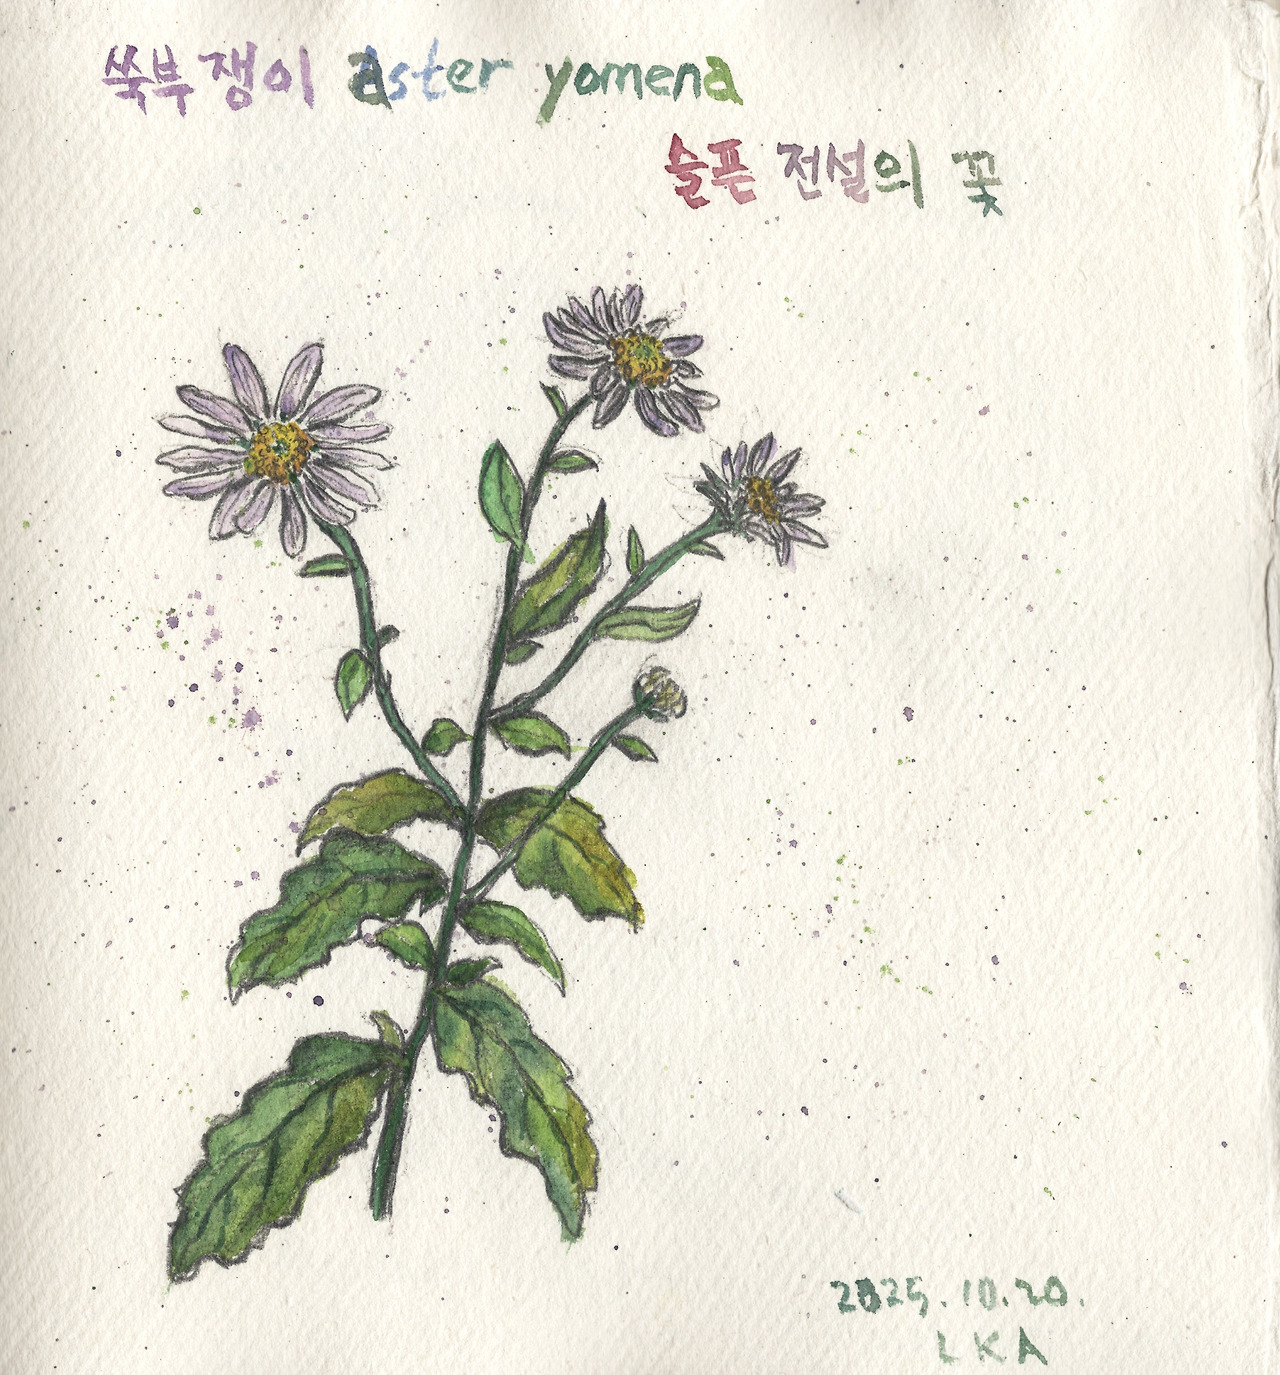 쑥부쟁이 aster yomena
슬픈 전설의 꽃
2025.10.20.
LKA